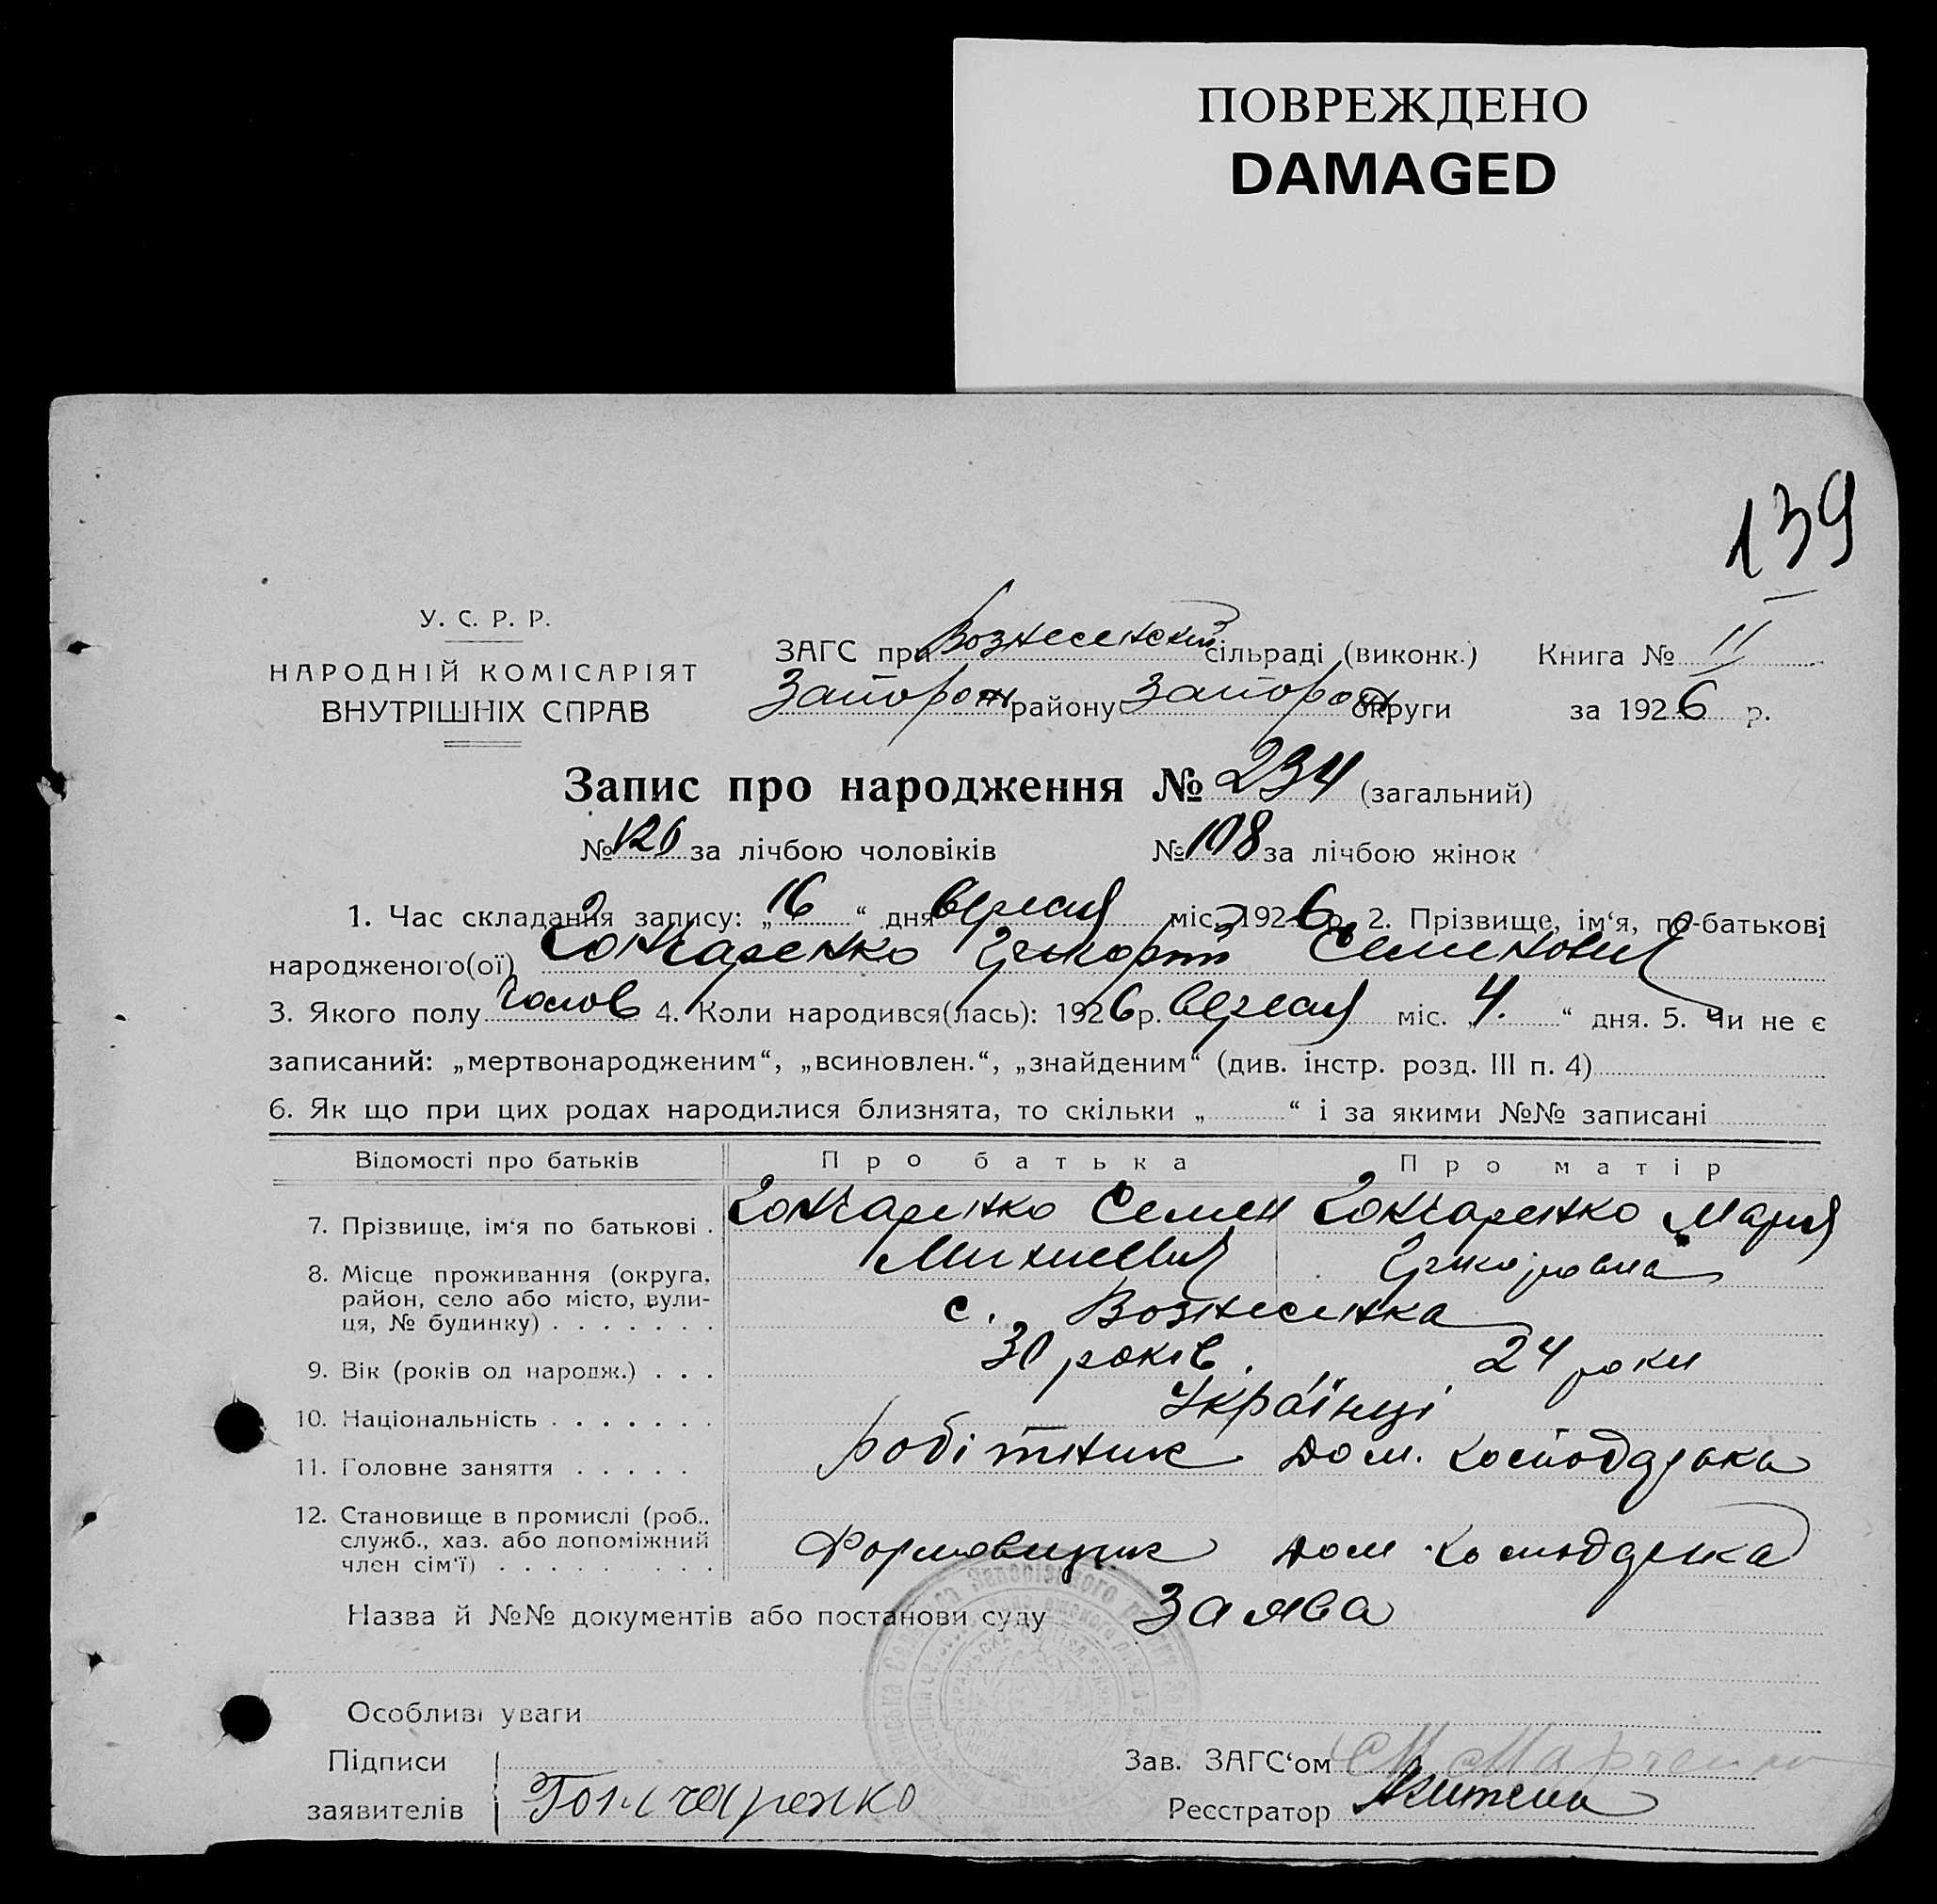 ПОВРЕЖДЕНО
DAMAGED
139
У. С. Р. Р.
НАРОДНІЙ КОМІСАРІЯТ
ВНУТРІШНІХ СПРАВ
ЗАГС при Вознесенській сільраді (виконк.) Книга № II
Запорож району Запорож округи за 1926 р.
Запис про народження № 234 (загальний)
№ 126 за лічбою чоловіків № 108 за лічбою жінок
1. Час складання запису: „16“ дня вересня міс. 1926 р. 2. Прізвище, ім‘я, по-батькові
народженого(ої) Гончаренко Григорій Семенович
3. Якого полу чолов 4. Коли народився(лась): 1926 р. вересня міс. „4.“ дня. 5. Чи не є
записаний: „мертвонародженим“, „всиновлен.“, „знайденим“ (див. інстр. розд. III п. 4)
6. Як що при цих родах народилися близнята, то скільки „ “ і за якими №№ записані
Відомості про батьків Про батька Про матір
7. Прізвище, ім‘я по батькові . Гончаренко Семен Гончаренко Мария
8. Місце проживання (округа, район, село або місто, вулиця, № будинку) . . . . . . . с. Вознесенка
9. Вік (років од народж.) . . . 30 років. 24 роки
10. Національність . . . . . . . Українці
11. Головне заняття . . . . . Робітник Дом. господарка
12. Становище в промислі (роб., служб., хаз. або допоміжний член сім‘ї) . . . . . . . . . Формовщик Дом господарка
Назва й №№ документів або постанови суду Заява
Особливі уваги
Підписи
заявителів Гончаренко
Зав. ЗАГС‘ом Марченко
Реєстратор